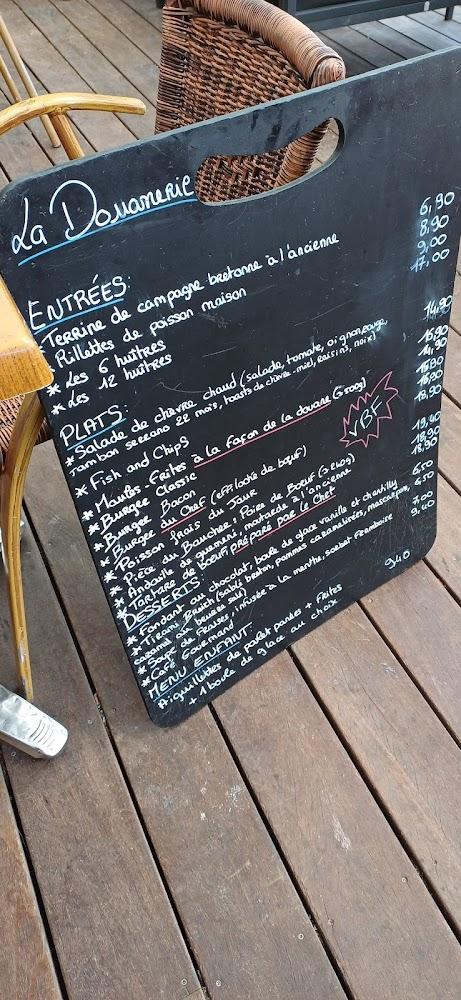 La Douanerie
ENTRÉES:
* Terrine de campagne bretonne à l'ancienne 6,90
* Rillettes de poisson maison 8,90
* Les 6 huîtres 9,00
* Les 12 huîtres 17,00
PLATS:
* Salade de chèvre chaud (salade, tomate, oignon rouge,
Jambon serrano 22 mois, toasts de chèvre-miel, raisins, noix) 14,90
* Fish and Chips
* Moules-frites à la façon de la douane (Groog)
* Burger Classic
* Burger Bacon
* Burger du Chef (effiloché de bœuf)
* Poisson frais du Jour
* Pièce du Boucher: Poire de Bœuf
* Andouille de guémené, moutarde à l'ancienne
* Tartare de bœuf préparé par le Chef
VBF
DESSERTS:
* Fondant au chocolat, boule de glace vanille et chantilly 6.50
* Tirami Breizh (sablé breton, pommes caramélisées, mascarpone,
caramel au beurre salé) 6,50
* Soupe de fraises, infusée à la menthe, sorbet framboise 7.00
* Café Gourmand 9.40
MENU ENFANT: 9.40
Aiguillettes de poulet panées + frites
+ 1 boule de glace au choix